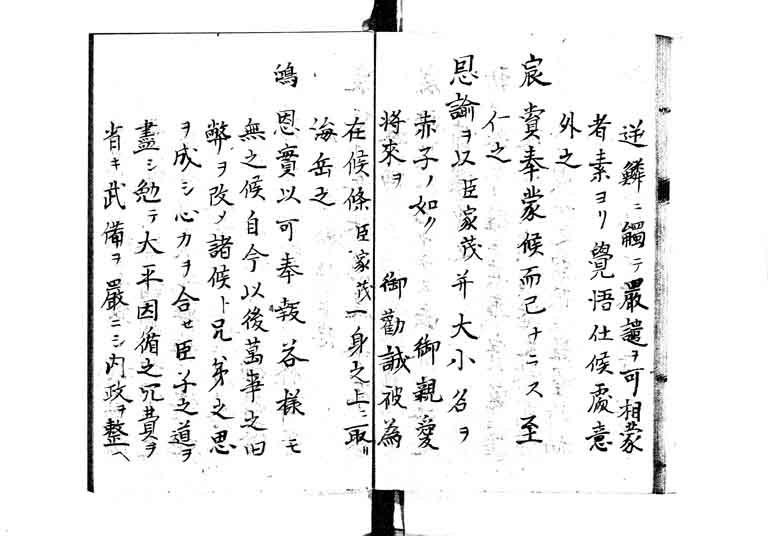 逆鱗ニ觸テ嚴譴ヲ可相蒙
者素ヨリ覺悟仕候處意
外之
宸賞奉蒙候而已ナニス至
仁之
恩諭ヲ以臣家茂并大小名ヲ
赤子ノ如ク 御親愛
將來ヲ 御勸誡被為
在候條臣家茂一身之上ニ取リ
海岳之
鴻恩實以可奉報答樣モ
無之候自今以後萬事之旧
弊ヲ改メ諸侯ト兄弟之思
ヲ成シ心力ヲ合セ臣子之道ヲ
盡シ勉テ大平因循之冗費ヲ
省キ武備ヲ嚴ニシ内政ヲ整ヘ